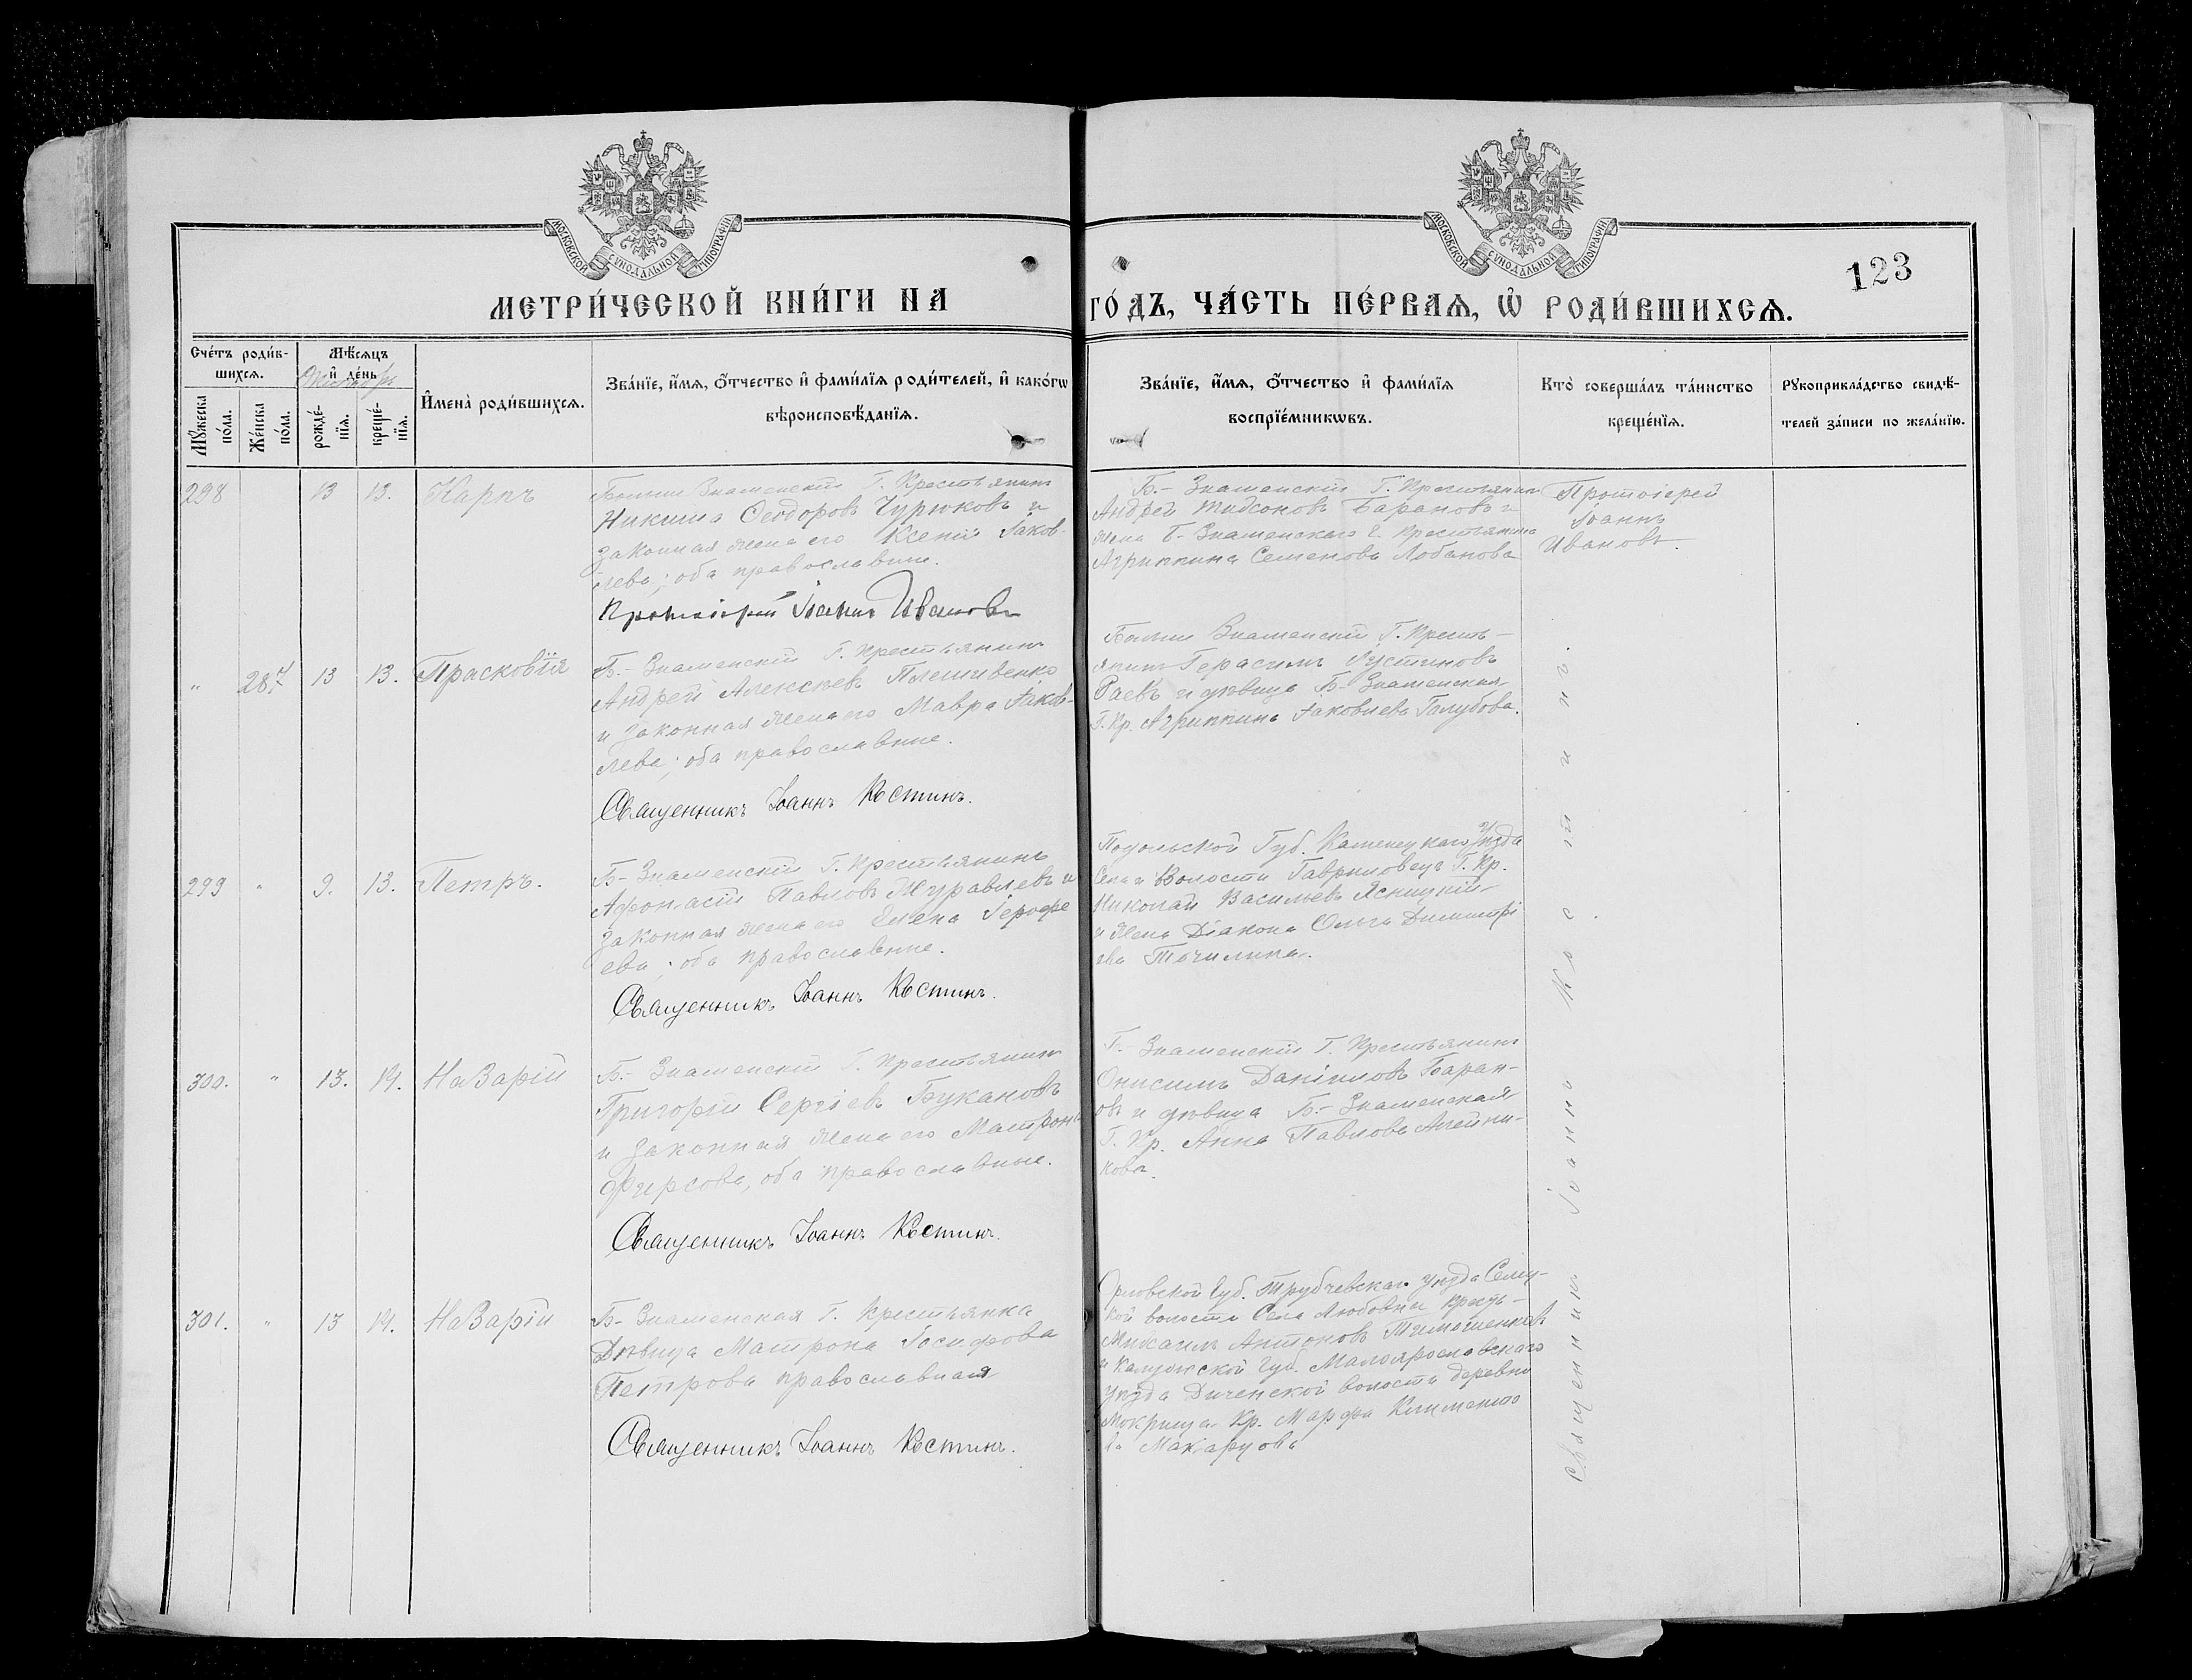 МОСКОВСКОЙ СУНОДАЛЬНОЙ ТИПОГРАФІИ
МОСКОВСКОЙ СУНОДАЛЬНОЙ ТИПОГРАФІИ
123
МЕТРИ́ЧЕСКОЙ КНИ́ГИ НА ГО́ДЪ, ЧА́СТЬ ПЕ́РВАЯ, Ѡ҆ РОДИ́ВШИХСЯ.
Сче́тъ роди́в-
шихся.
Мꙋ́жеска по́ла.
Же́нска по́ла.
Мѣ́сяцъ
и҆ де́нь
рожде́-
нїя.
креще́-
нїя.
И҆мена̀ роди́вшихся.
Зва́нїе, и҆́мя, ѻ҆́тчество и҆ фами́лїя роди́телей, и҆ како́гѡ
вѣроисповѣ́данїя.
Зва́нїе, и҆́мя, ѻ҆́тчество и҆ фами́лїя
воспрїе́мникѡвъ.
Кто̀ соверша́лъ та́инство
креще́нїя.
Рꙋкоприкла́дство свидѣ́-
телей за́писи по жела́нїю.
298 13 13. Карпъ
Больше Знаменскій Г. Крестьянинъ
Никита Ѳеодоровъ Чурюковъ и
законная жена его Ксенія Іаков-
лева; оба православные.
Протоіерей Іоаннъ Ивановъ
Б.- Знаменскій Г. Крестьянинъ
Андрей Баранов и
жена Б.- Знаменскаго Г. Крестьянина
Агриппина Семенова Лобанова
Протоіерей
Іоаннъ
Ивановъ.
" 287 13 13. Прасковія
Б.- Знаменскій Г. Крестьянинъ
Андрей Алексѣевъ Плешивенко
и законная жена его Мавра Іаков-
лева; оба православные.
Священникъ Іоаннъ Костинъ.
Больше Знаменскій Г. Кресть-
янинъ Герасимъ Іустиновъ
Раевъ и дѣвица Б- Знаменская
Г. Кр. Агриппина Іаковлева Голубова.
299 " 9. 13. Петръ.
Б- Знаменскій Г. Крестьянинъ
Афонасій Павловъ Журавлевъ и
законная жена его Елена Іерофе
ева; оба православные.
Священникъ Іоаннъ Костинъ.
Подольской Губ. Каменецкаго Уѣзда
Села и Волости Гавриловецъ Г. Кр.
Николай Васильевъ Ясницкій
и жена Діакона Ольга Димитрі
ева Точилина.
300. " 13. 14. Назарій
Б.- Знаменскій Г. Крестьянинъ
Григорій Сергіевъ Букановъ
и законная жена его Матрона
Фирсова, оба православные.
Священникъ Іоаннъ Костинъ.
Б.- Знаменскій Г. Крестьянинъ
Онисимъ Даніиловъ Баран-
овъ и дѣвица Б.- Знаменская
Г. Кр. Анна Павлова Алейни-
кова.
301. " 13 14. Назарій
Б- Знаменская Г. Крестьянка
Дѣвица Матрона Іосифова
Петрова православная
Священникъ Іоаннъ Костинъ.
Орловской Губ. Трубчевскаго уѣзда
кой волости Села кресть-
Михаилъ Антоновъ
и Калужской Губ. Малоярославскаго
уѣзда волости деревни
Кр. Марфа Климento
ва
Священникъ Іоаннъ Костинъ.